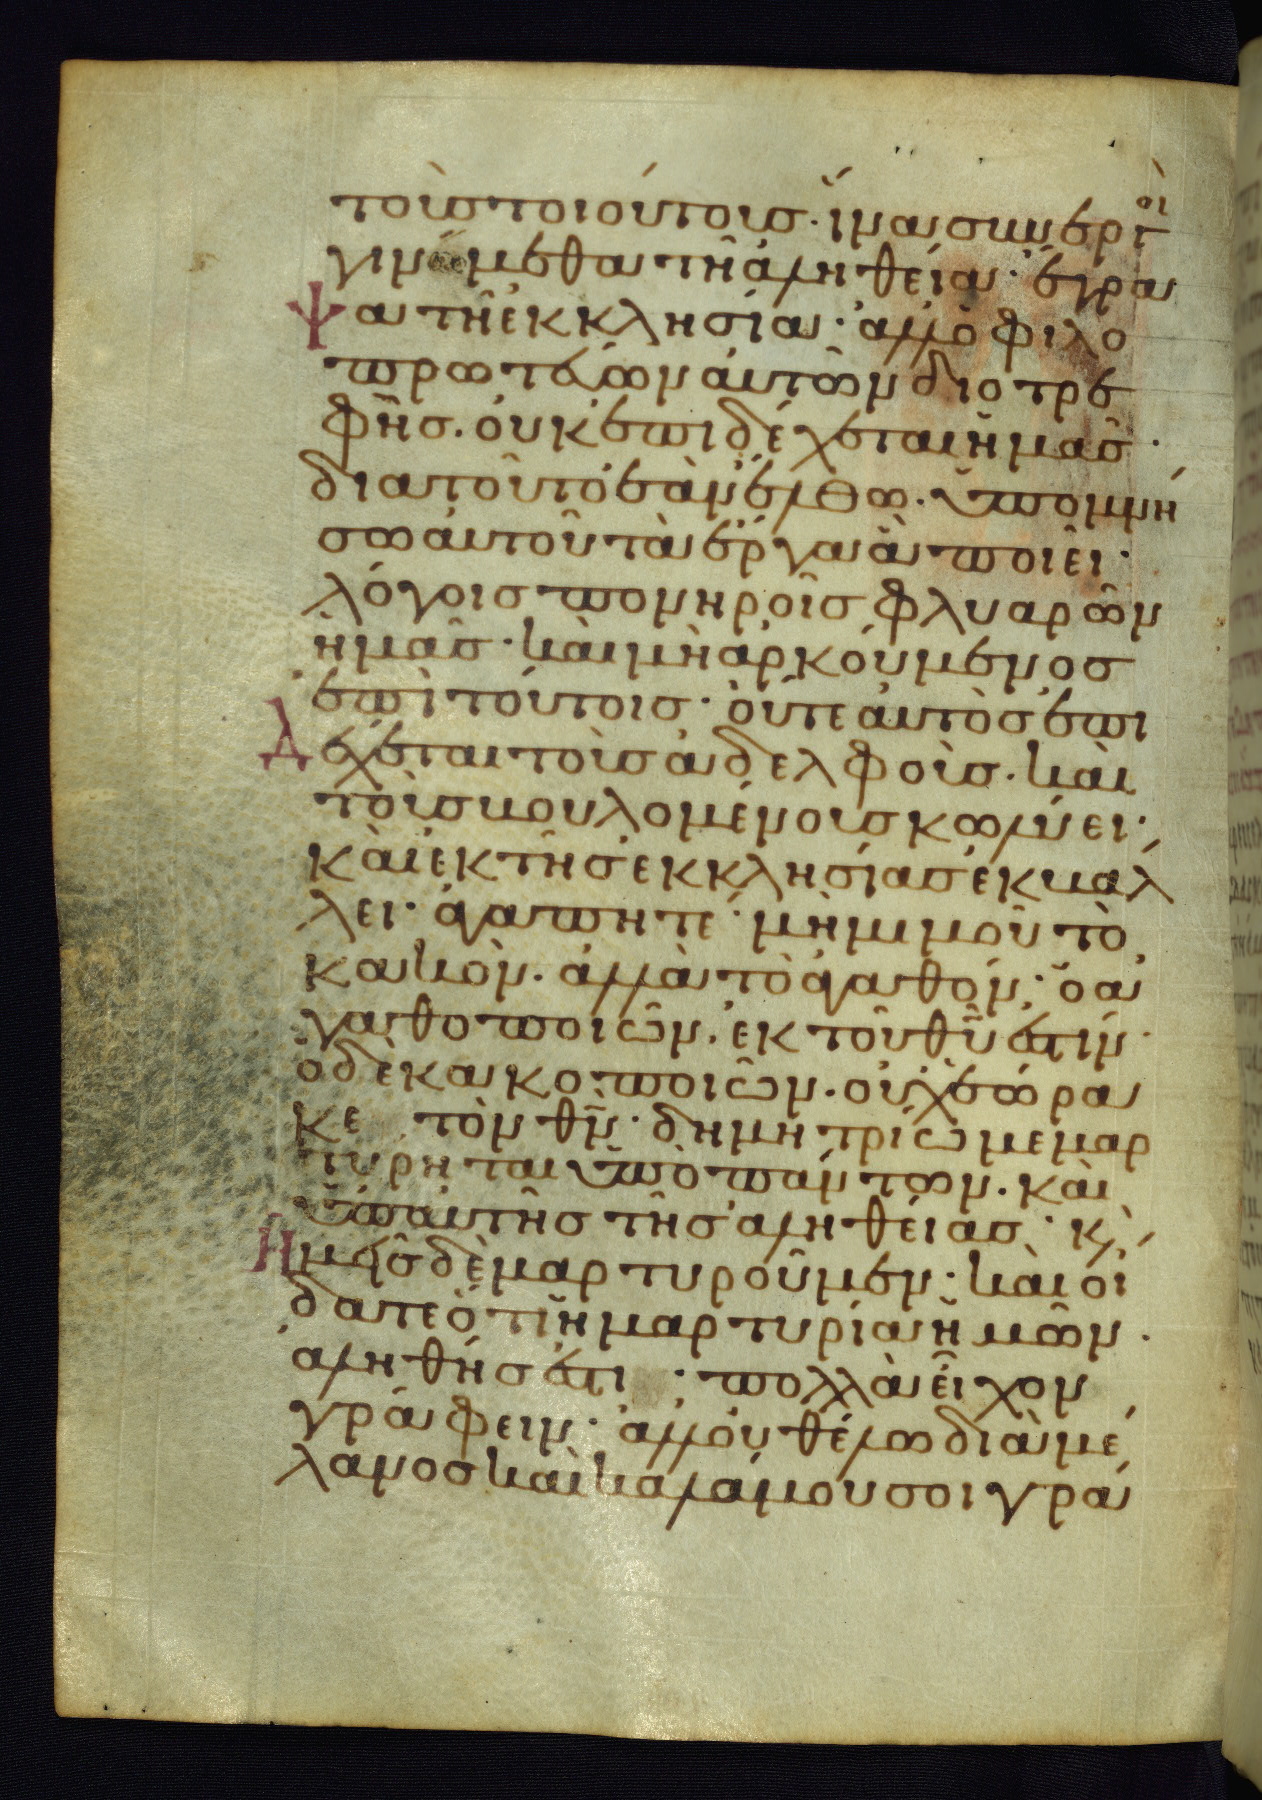 τοὺς τοιούτους· ἵνα συνεργοὶ
γινώμεθα τῆ ἀληθεία· ἔγρα
ψα τῆ ἐκκλησία· ἀλλ ὁ φιλο
πρωτεύων αὐτῶν διοτρε
φὴς. οὐκ ἐπιδέχεται ἡμᾶς·
διατοῦτο ἐὰν ἔλθω. ὑπομνή
σω αὐτοῦ τὰ ἔργα ἃ ποιεῖ·
λόγοις πονηροῖς φλυαρῶν
ἡμᾶς· καὶ μὴ ἀρκούμενος
ἐπὶ τούτοις· οὔτε αὐτὸς ἐπι
δέχεται τοὺς ἀδελφοὺς. καὶ
τοὺς βουλομένους κωλύει·
καὶ ἐκ τῆς ἐκκλησίας ἐκβάλ
λει· ἀγαπητὲ· μὴ μιμοῦ τὸ
κακὸν. ἀλλὰ τὸ ἀγαθόν· ὁ ἀ
γαθοποιῶν. ἐκ τοῦ θῦ ἐστιν·
ὁ δὲ κακοποιῶν. οὐχ ἑώρα
κε τὸν θν̄· δημητρίω μεμαρ
τύρηται ὑπὸ πάντων. καὶ
ὑπ αὐτῆς τῆς ἀληθείας· κὶ
ἡμεῖς δὲ μαρτυροῦμεν· καὶ οἴ
δατε ὅτι ἡ μαρτυρία ἡμῶν.
ἀληθής ἐστι· πολλὰ εἶχον
γράφειν· ἀλλ οὐ θέλω διὰ μέ
λανος καὶ καλάμου σοι γρά